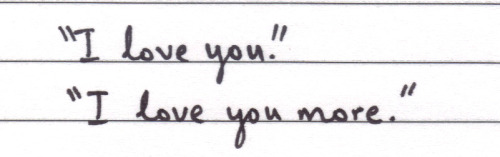 "I love you."
"I love you more."